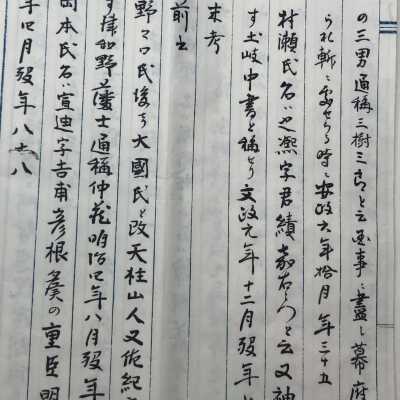 の三男通稱三樹三郎と云 国事ニ盡し幕府
られ斬ニ處せらる時ニ安政六年拾月 年三十五
村瀬氏名ハ 字君績嘉右衛門と云又神
す土岐中書と稱せり文政元年十二月歿年
末考
前出
野々口氏後ち大國氏と改天柱山人又佐紀
す津和野藩士通稱仲 明治四年八月歿年
岡本氏名ハ宣迪字吉甫彦根 の重臣明
年四月歿年八十八